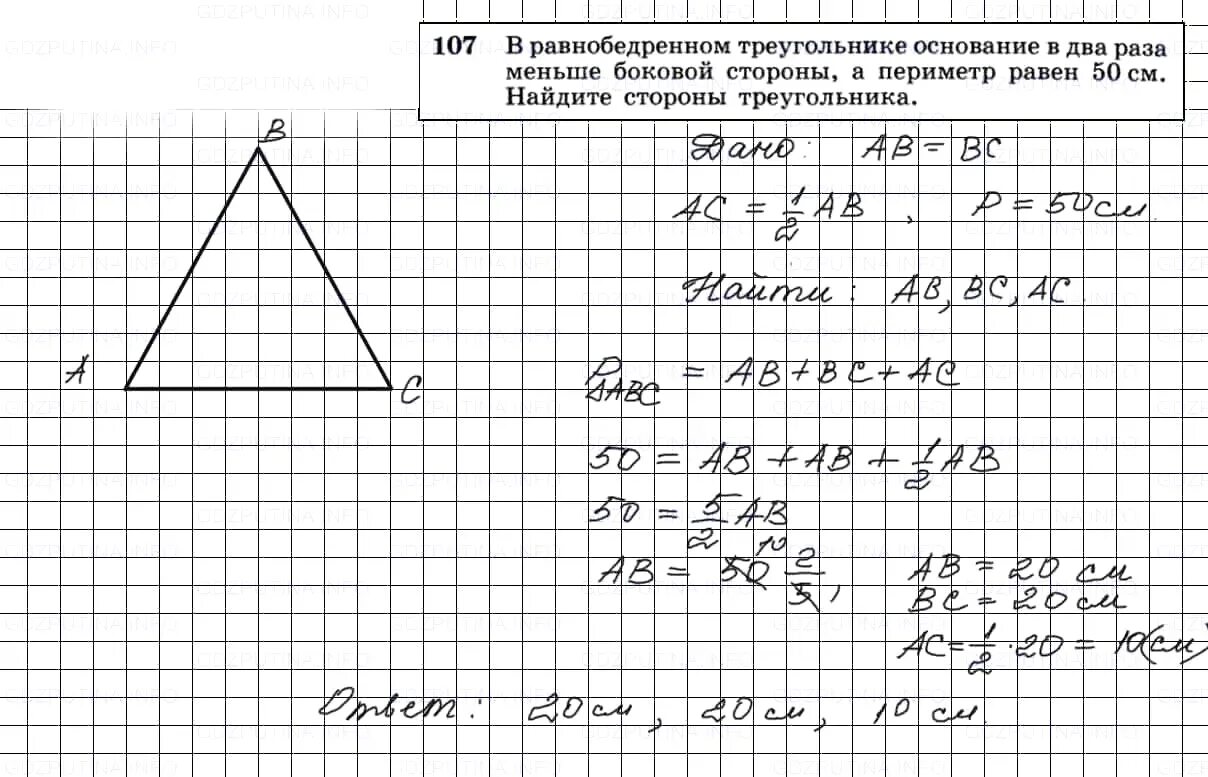 107 В равнобедренном треугольнике основание в два раза
меньше боковой стороны, а периметр равен 50 см.
Найдите стороны треугольника.
B
A
C
Дано: AB = BC
AC = 1/2 AB, P = 50 см.
Найти: AB, BC, AC.
P△ABC = AB + BC + AC
50 = AB + AB + 1/2 AB
50 = 5/2 AB
10
AB = 50 2/5, AB = 20 см
BC = 20 см
AC = 1/2 · 20 = 10(см)
Ответ: 20 см, 20 см, 10 см.
GDZPUTINA.INFO